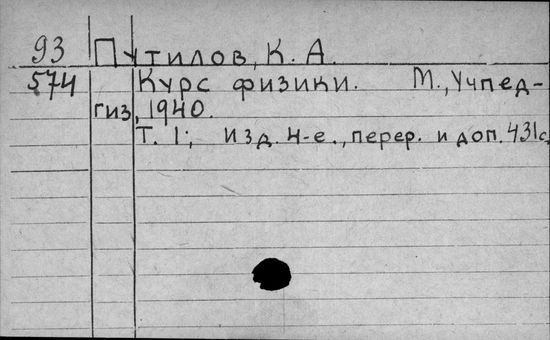 93 Путилов, К. А.
574 Курс физики. М., Учпед-
гиз, 1940.
Т. 1; изд. 4-е., перер. и доп. 431с.